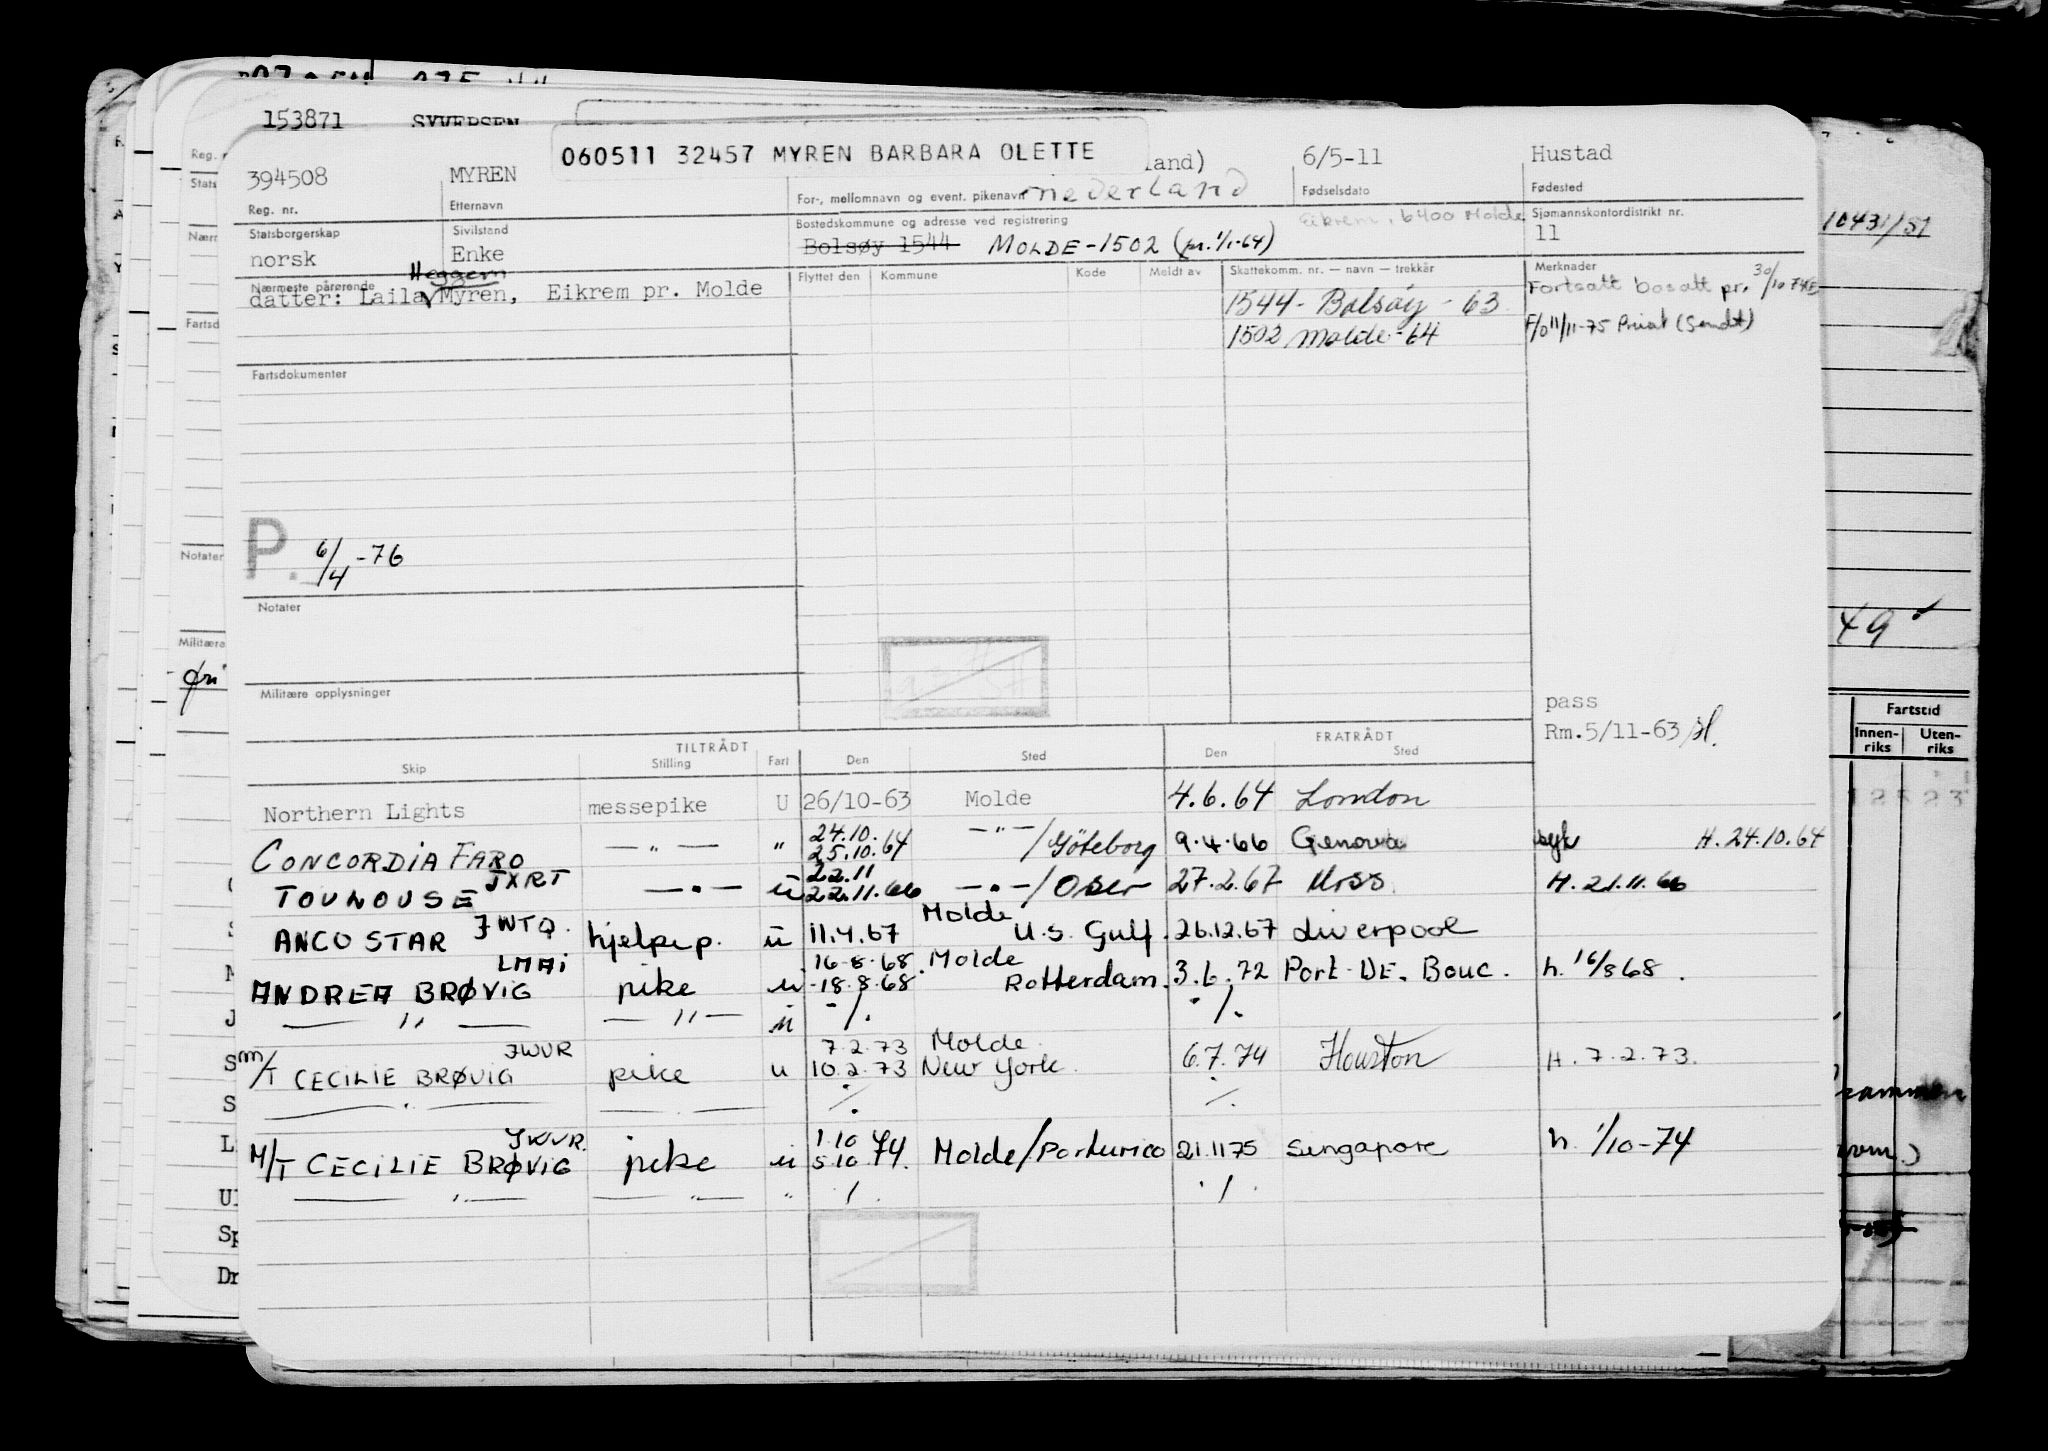 153871 SYVERSEN
060511 32457 MYREN BARBARA OLETTE
394508 MYREN land) 6/5-11 Hustad
Nederland
Reg. nr. Etternavn For-, mellomnavn og event. pikenavn Fødselsdato Fødested
Statsborgerskap Sivilstand Bostedskommune og adresse ved registrering Eikrem, 6400 Molde Sjømannskontordistrikt nr.
norsk Enke Bolsøy 1544 MOLDE-1502 (pr. 1/1-64) 11
Heggem
Nærmeste pårørende Flyttet den Kommune Kode Meldt av Skattekomm. nr. — navn — trekkår Merknader
datter: Laila Myren, Eikrem pr. Molde
1544 - Bolsøy - 63 Fortsatt bosatt pr. 30/10 74
1502 Molde - 64 F/O 11/11-75 Privat (Sendt)
Fartsdokumenter
P. 6/4 -76
Notater
Militære opplysninger
pass
Rm.5/11-63
TILTRÅDT FRATRÅDT
Skip Stilling Fart Den Sted Den Sted
Northern Lights messepike U 26/10-63 Molde 4.6.64 London
CONCORDIA FARO — " — " 24.10. 25.10.64 — " — /Göteborg 9.4.66 Genova syk H. 24.10.64
TOULOUSE JXRT — " — u 22.11 22.11.66 — " — / 27.2.67 Moss. H. 21.11.66
ANCO STAR JWTQ. hjelpep. u 11.4.67 Molde U.S. Gulf. 26.12.67 Liverpool
ANDREA BRØVIG LMAI pike u 16.8.68. 18.8.68 Molde Rotterdam. 3.6.72 Port-DE. Bouc. h. 16/8 68.
— " — — " — u - /. - /.
M/T CECILIE BRØVIG JWVR pike u 7.2.73 10.2.73 Molde New York. 6.7.74 Houston H. 7.2.73.
M/T CECILIE BRØVIG JWVR. pike u 1.10 5.10 74. Molde/Porturico 21.11 75 Singapore h. 1/10-74
— " — — " — " / . . / .
10431/51
49
Fartstid
Innen-riks Uten-riks